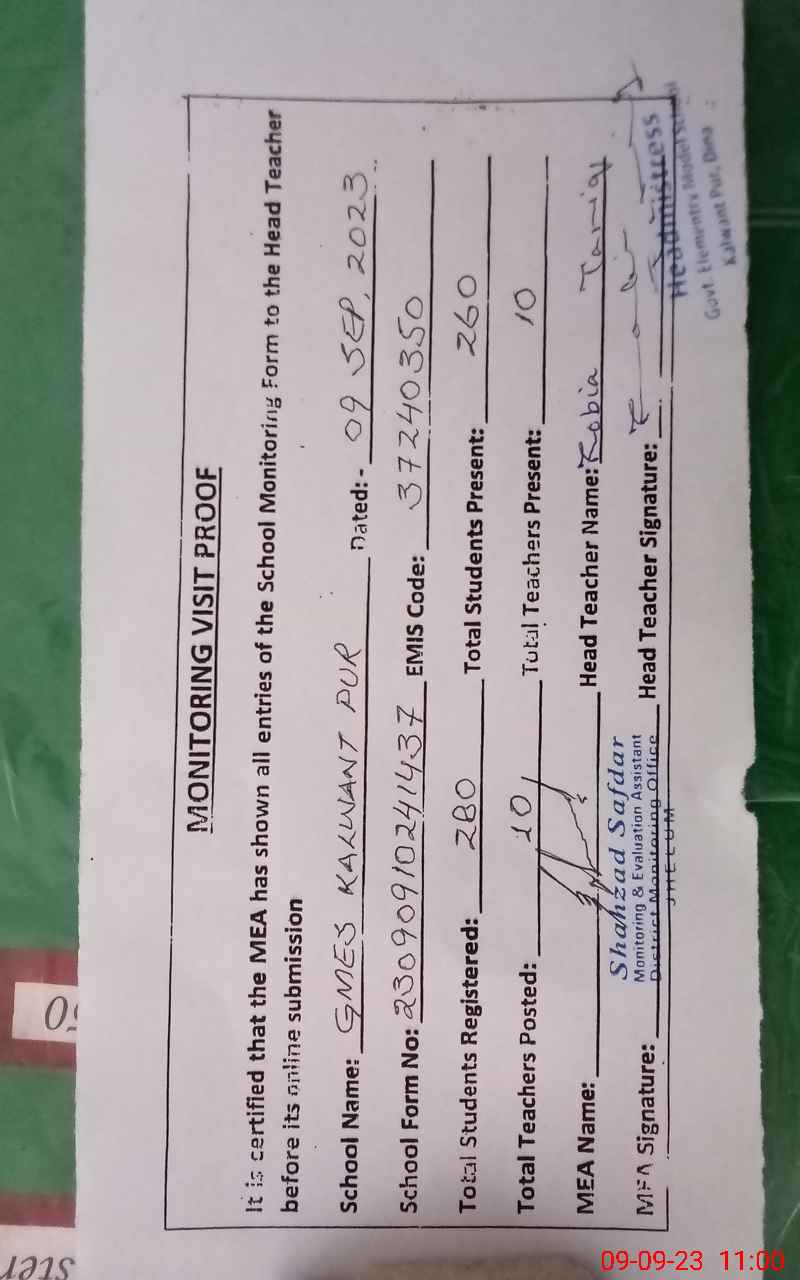 MONITORING VISIT PROOF
It is certified that the MEA has shown all entries of the School Monitoring Form to the Head Teacher
before its online submission
School Name: GMES KALWANT PUR Dated: - 09 SEP, 2023
School Form No: 23090910241437 EMIS Code: 37240350
Total Students Registered: 280 Total Students Present: 260
Total Teachers Posted: 10 Total Teachers Present: 10
MEA Name: Head Teacher Name: Robia Tariq
Shahzad Safdar
Monitoring & Evaluation Assistant
District Monitoring Office
JHELUM
MEA Signature: Head Teacher Signature:
Headmistress
Govt. Elementry Model School
Kalwant Pur, Dina
50
ster
09-09-23 11:00